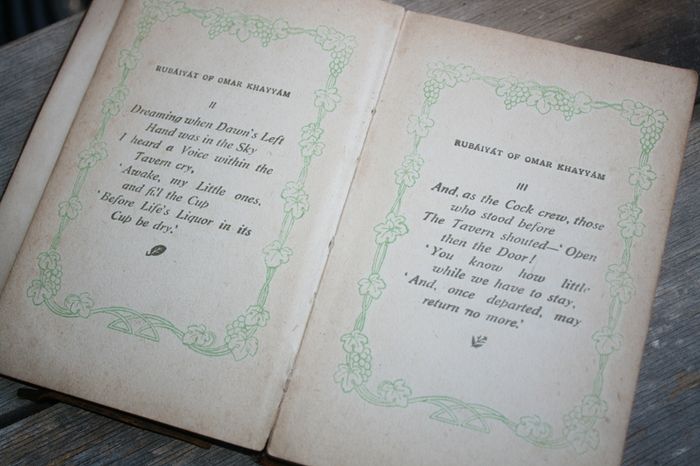 RUBÁIYÁT OF OMAR KHAYYÁM
II
Dreaming when Dawn's Left
Hand was in the Sky
I heard a Voice within the
Tavern cry,
'Awake, my Little ones,
and fill the Cup
'Before Life's Liquor in its
Cup be dry.'
RUBÁIYÁT OF OMAR KHAYYÁM
III
And, as the Cock crew, those
who stood before
The Tavern shouted—'Open
then the Door!
'You know how little
while we have to stay,
'And, once departed, may
return no more.'